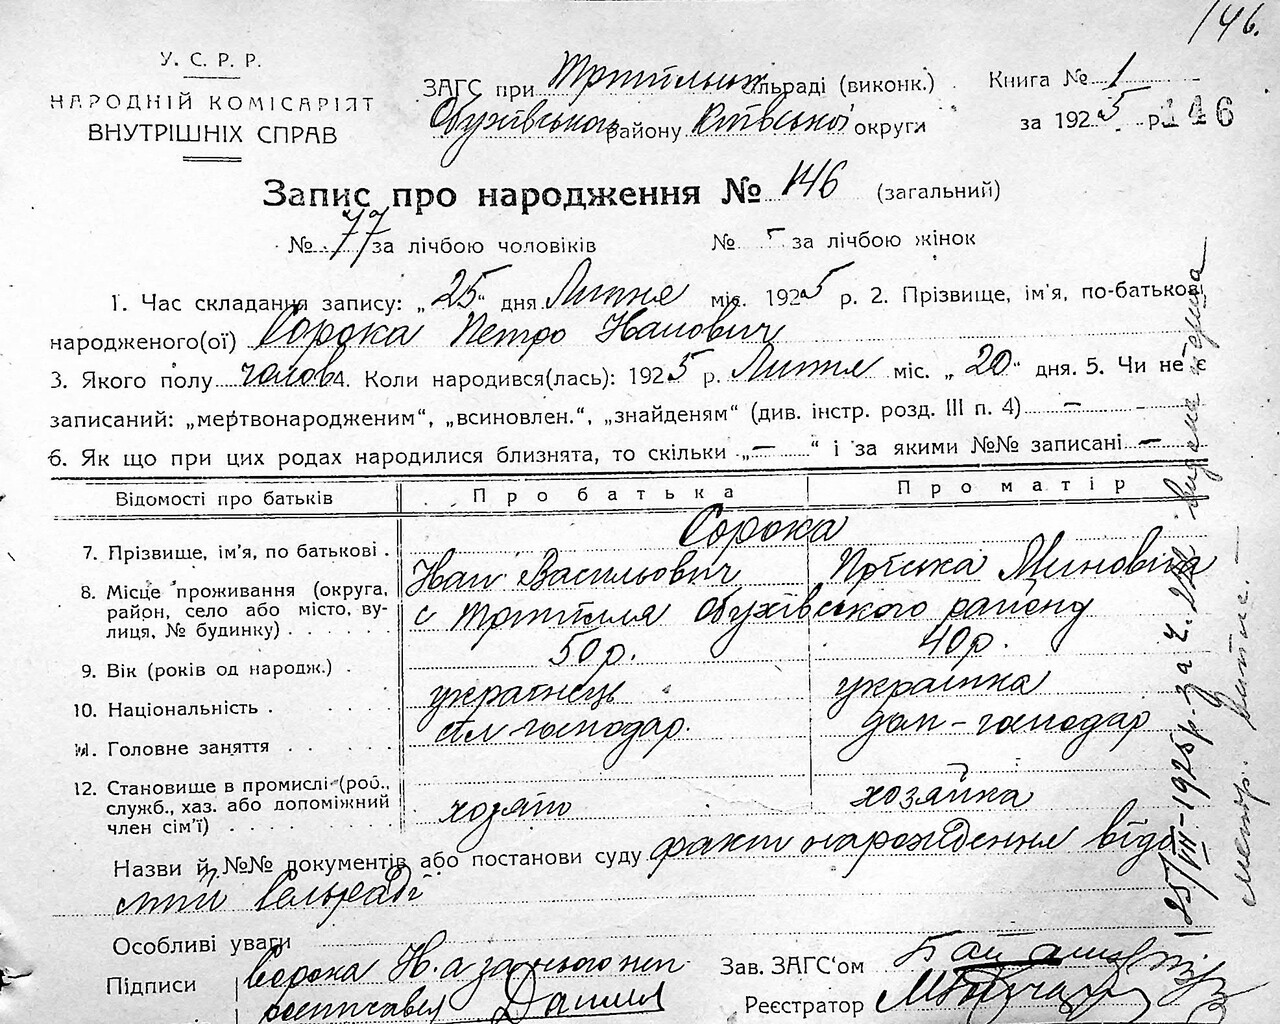 146.
У. С. Р. Р.
НАРОДНІЙ КОМІСАРІЯТ
ВНУТРІШНІХ СПРАВ
ЗАГС при Трипільськ. сільраді (виконк.)
Обухівського району Київської округи
Книга № 1
за 1925 р.
146
Запис про народження № 146 (загальний)
№ 77 за лічбою чоловіків № - за лічбою жінок
1. Час складання запису: „25“ дня Липня міс. 1925 р. 2. Прізвище, ім'я, по-батькові
народженого(ої) Сорока Петро Іванович
3. Якого полу чолов 4. Коли народився(лась): 1925 р. Липня міс. „20“ дня. 5. Чи не є
записаний: „мертвонародженим“, „всиновлен.“, „знайденям“ (див. інстр. розд. III п. 4) — -
6. Як що при цих родах народилися близнята, то скільки „—“ і за якими №№ записані —
Відомості про батьків Про батька Про матір
Сорока
7. Прізвище, ім'я, по батькові .
Іван Васильович Пріська Миновна
8. Місце проживання (округа,
район, село або місто, ву-
лиця, № будинку)
с Трипілля Обухівського району
9. Вік (років од народж.) . 50 р. 40 р.
10. Національність . українець українка
11. Головне заняття сіл-господар. дом-господар
12. Становище в промислі (роб.,
служб., хаз. або допоміжний
член сім'ї)
хозяїн хозяйка
Назви й №№ документів або постанови суду факт народження відо
мий сельраді
Особливі уваги
Підписи Сорока І. а за нього неп
росписався Данил
Зав. ЗАГС‘ом
Реєстратор
25/VII-1925 р. за ч. видана перша
метр. випис. —